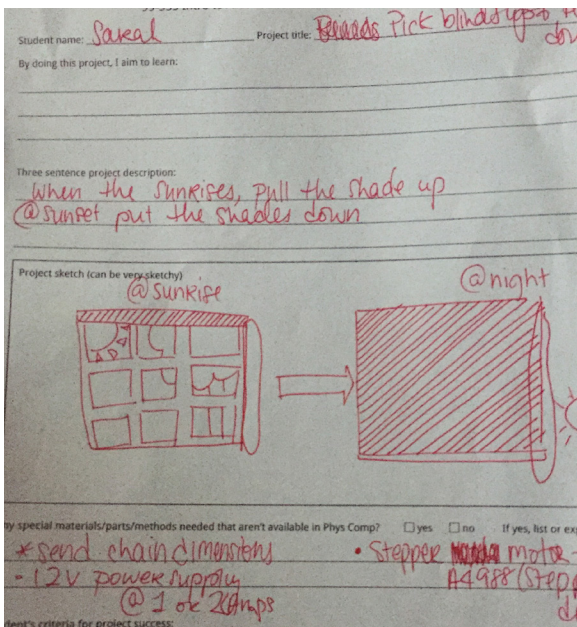 Student name: Sareal Project title: Pick blinds up
By doing this project, I aim to learn:
Three sentence project description:
When the sunrises, pull the shade up
@sunset put the shades down
Project sketch (can be very sketchy)
@sunrise
@night
any special materials/parts/methods needed that aren't available in Phys Comp? yes no If yes, list or
* send chain dimensions
• 12V power supply
@ 1 or 2Amps
• Stepper motor
A4988 (Step
dent's criteria for project success: